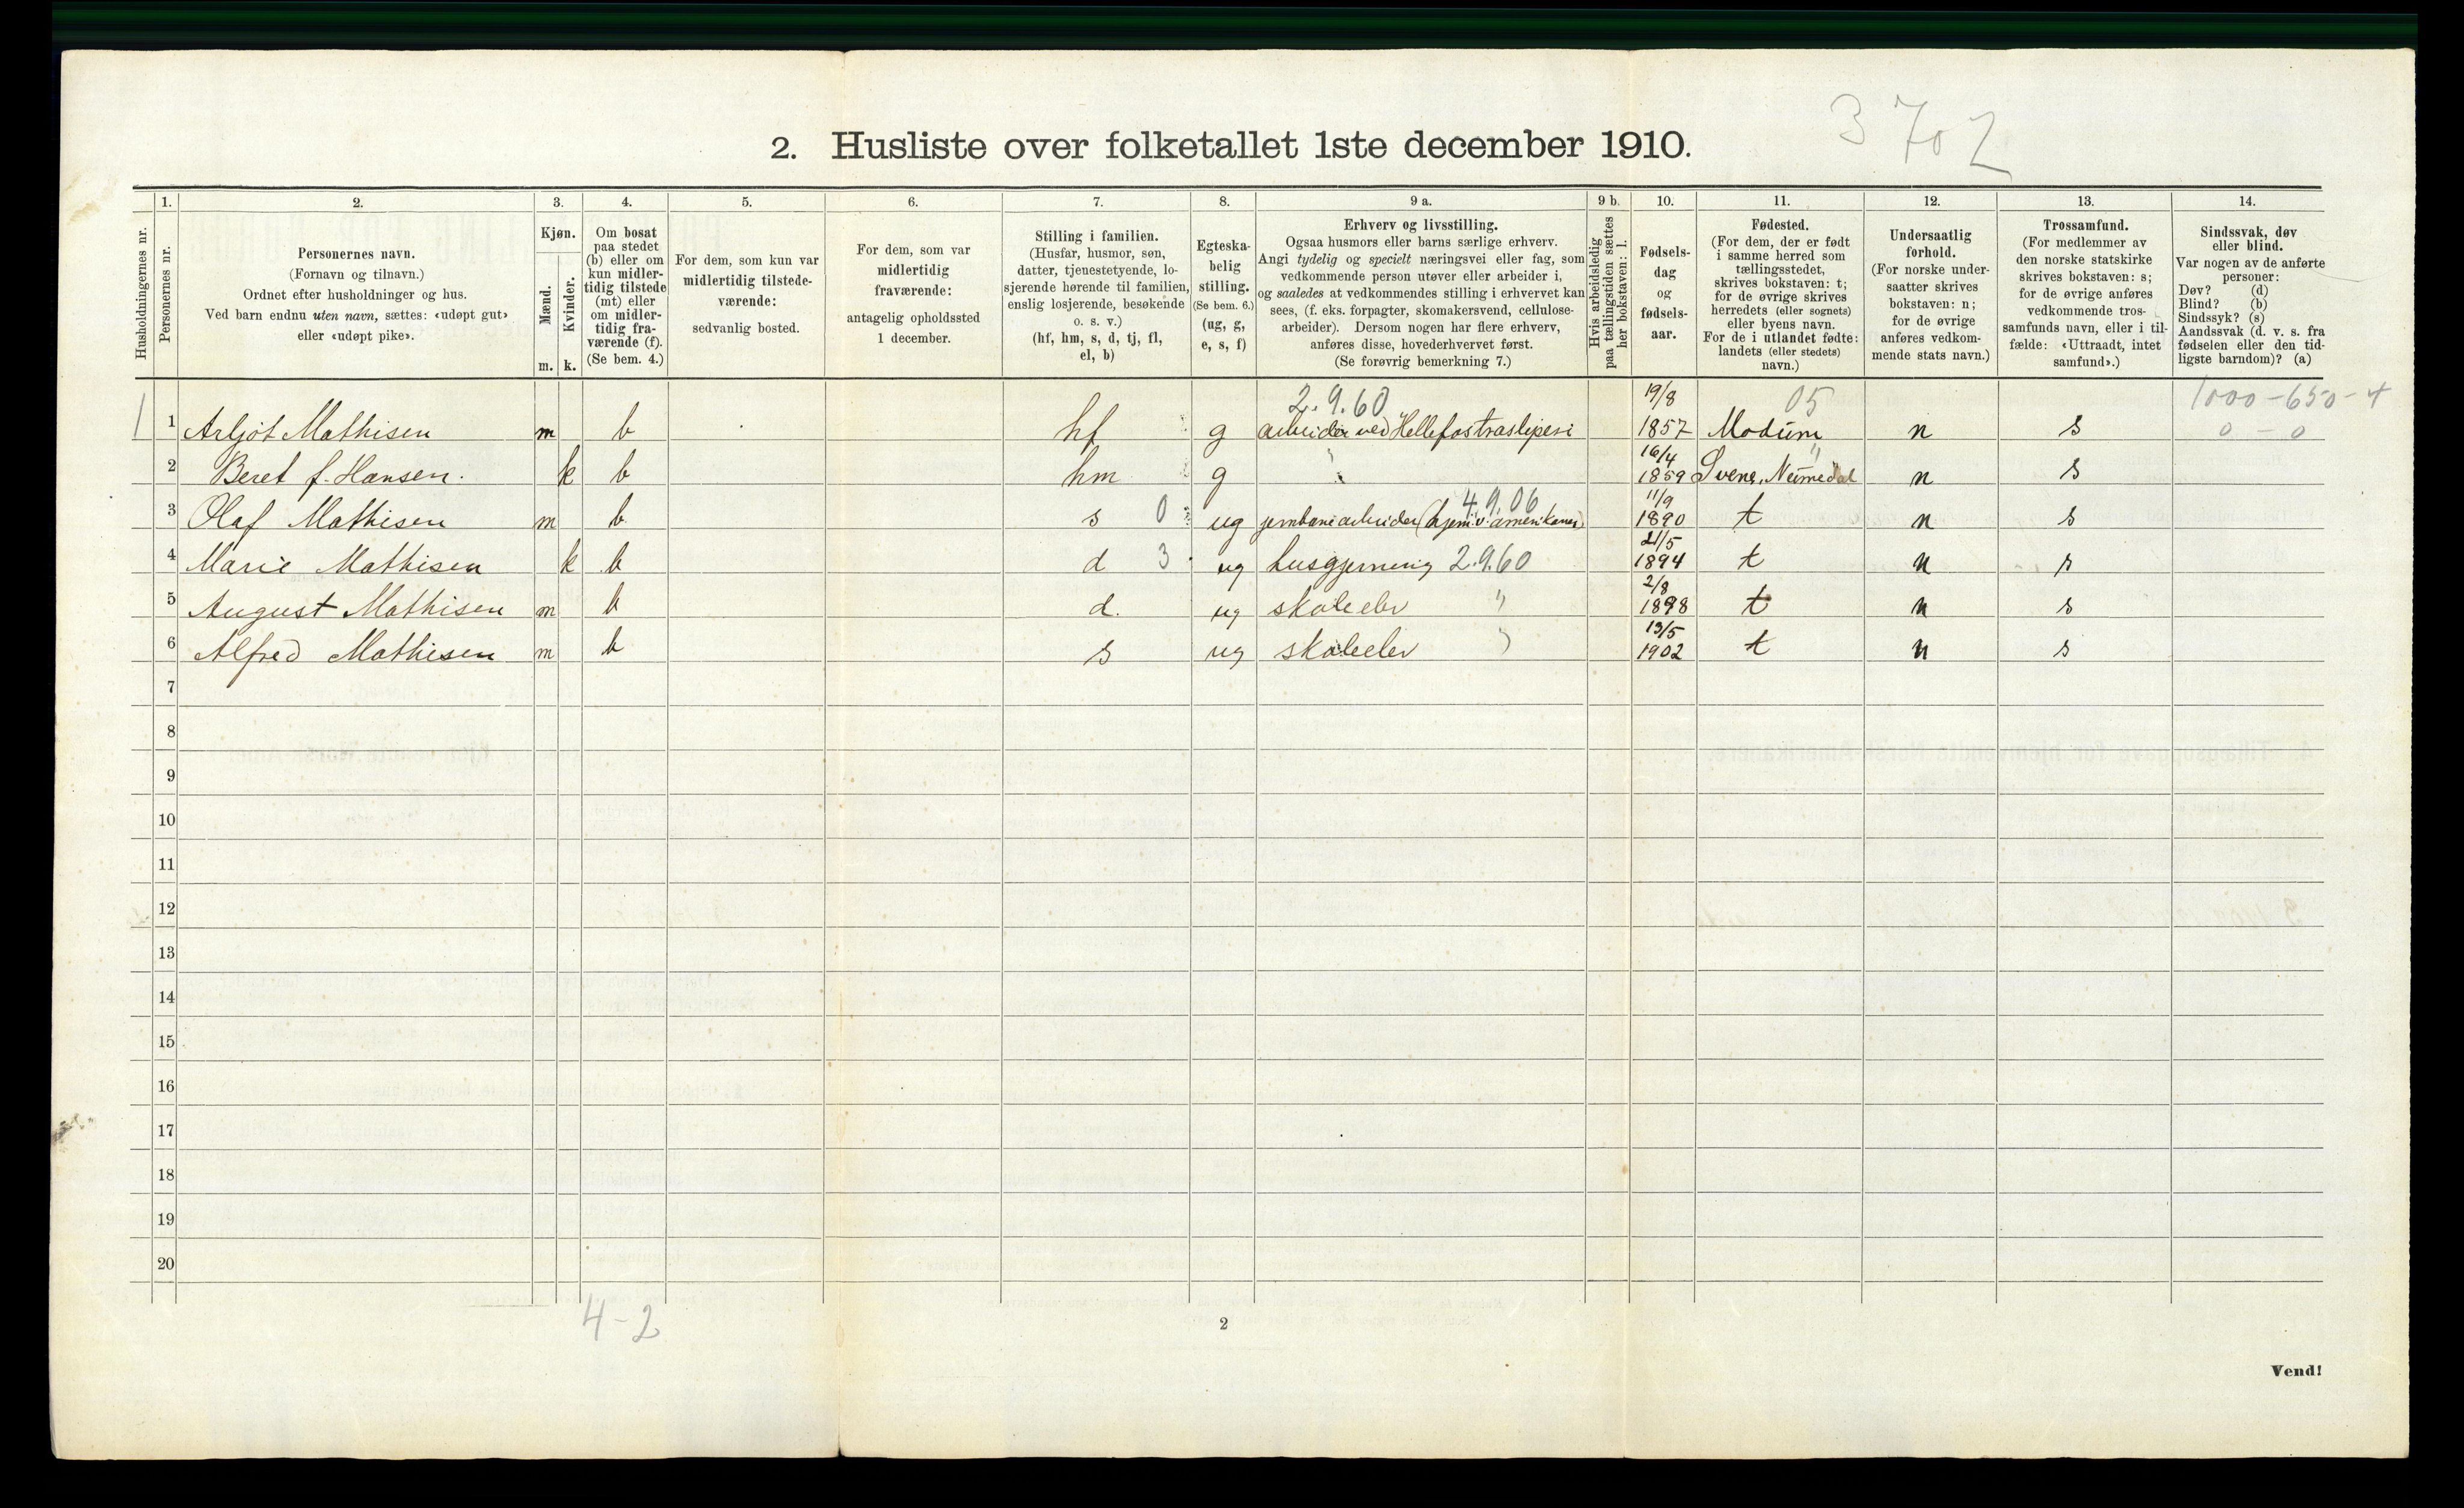 3702
2. Husliste over folketallet 1ste december 1910.
Husholdningernes nr.
1.
Personernes nr.
2.
Personernes navn.
(Fornavn og tilnavn.)
Ordnet efter husholdninger og hus.
Ved barn endnu uten navn, sættes: «udøpt gut»
eller «udøpt pike».
3.
Kjøn.
Mænd.
Kvinder.
m. k.
4.
Om bosat
paa stedet
(b) eller om
kun midler-
tidig tilstede
(mt) eller
om midler-
tidig fra-
værende (f).
(Se bem. 4.)
5.
For dem, som kun var
midlertidig tilstede-
værende:
sedvanlig bosted.
6.
For dem, som var
midlertidig
fraværende:
antagelig opholdssted
1 december.
7.
Stilling i familien.
(Husfar, husmor, søn,
datter, tjenestetyende, lo-
sjerende hørende til familien,
enslig losjerende, besøkende
o. s. v.)
(hf, hm, s, d, tj, fl,
el, b)
8.
Egteska-
belig
stilling.
(Se bem. 6.)
(ug, g,
e, s, f)
9 a.
Erhverv og livsstilling.
Ogsaa husmors eller barns særlige erhverv.
Angi tydelig og specielt næringsvei eller fag, som
vedkommende person utøver eller arbeider i,
og saaledes at vedkommendes stilling i erhvervet kan
sees, (f. eks. forpagter, skomakersvend, cellulose-
arbeider). Dersom nogen har flere erhverv,
anføres disse, hovederhvervet først.
(Se forøvrig bemerkning 7.)
9 b.
Hvis arbeidsledig
paa tællingstiden sættes
her bokstaven: l.
10.
Fødsels-
dag
og
fødsels-
aar.
11.
Fødested.
(For dem, der er født
i samme herred som
tællingsstedet,
skrives bokstaven: t;
for de øvrige skrives
herredets (eller sognets)
eller byens navn.
For de i utlandet fødte:
landets (eller stedets)
navn.)
12.
Undersaatlig
forhold.
(For norske under-
saatter skrives
bokstaven: n;
for de øvrige
anføres vedkom-
mende stats navn.)
13.
Trossamfund.
(For medlemmer av
den norske statskirke
skrives bokstaven: s;
for de øvrige anføres
vedkommende tros-
samfunds navn, eller i til-
fælde: «Uttraadt, intet
samfund».)
14.
Sindssvak, døv
eller blind.
Var nogen av de anførte
personer:
Døv? (d)
Blind? (b)
Sindssyk? (s)
Aandssvak (d. v. s. fra
fødselen eller den tid-
ligste barndom)? (a)
2.9.60 19/8 05 1000-650-4
1 1 Arljot Mathisen m b hf g arbeider ved Hellefostræsliperi 1857 Modum n s 0 - 0
16/4 "
2 Beret f. Hansen. k b hm g " 1859 Svene, Numedal n s
4.9.06 11/9
3 Olaf Mathisen m b s 0 ug jernbanearbeider (hjemv. amerikaner) 1890 t n s
21/5
4 Marie Mathisen k b d 3 ug husgjerning 2.9.60 1894 t n s
2/8
5 August Mathisen m b d. ug skoleelev " 1898 t n s
13/5
6 Alfred Mathisen m b s ug skoleelev " 1902 t n s
7
8
9
10
11
12
13
14
15
16
17
18
19
20
4-2
2
Vend!